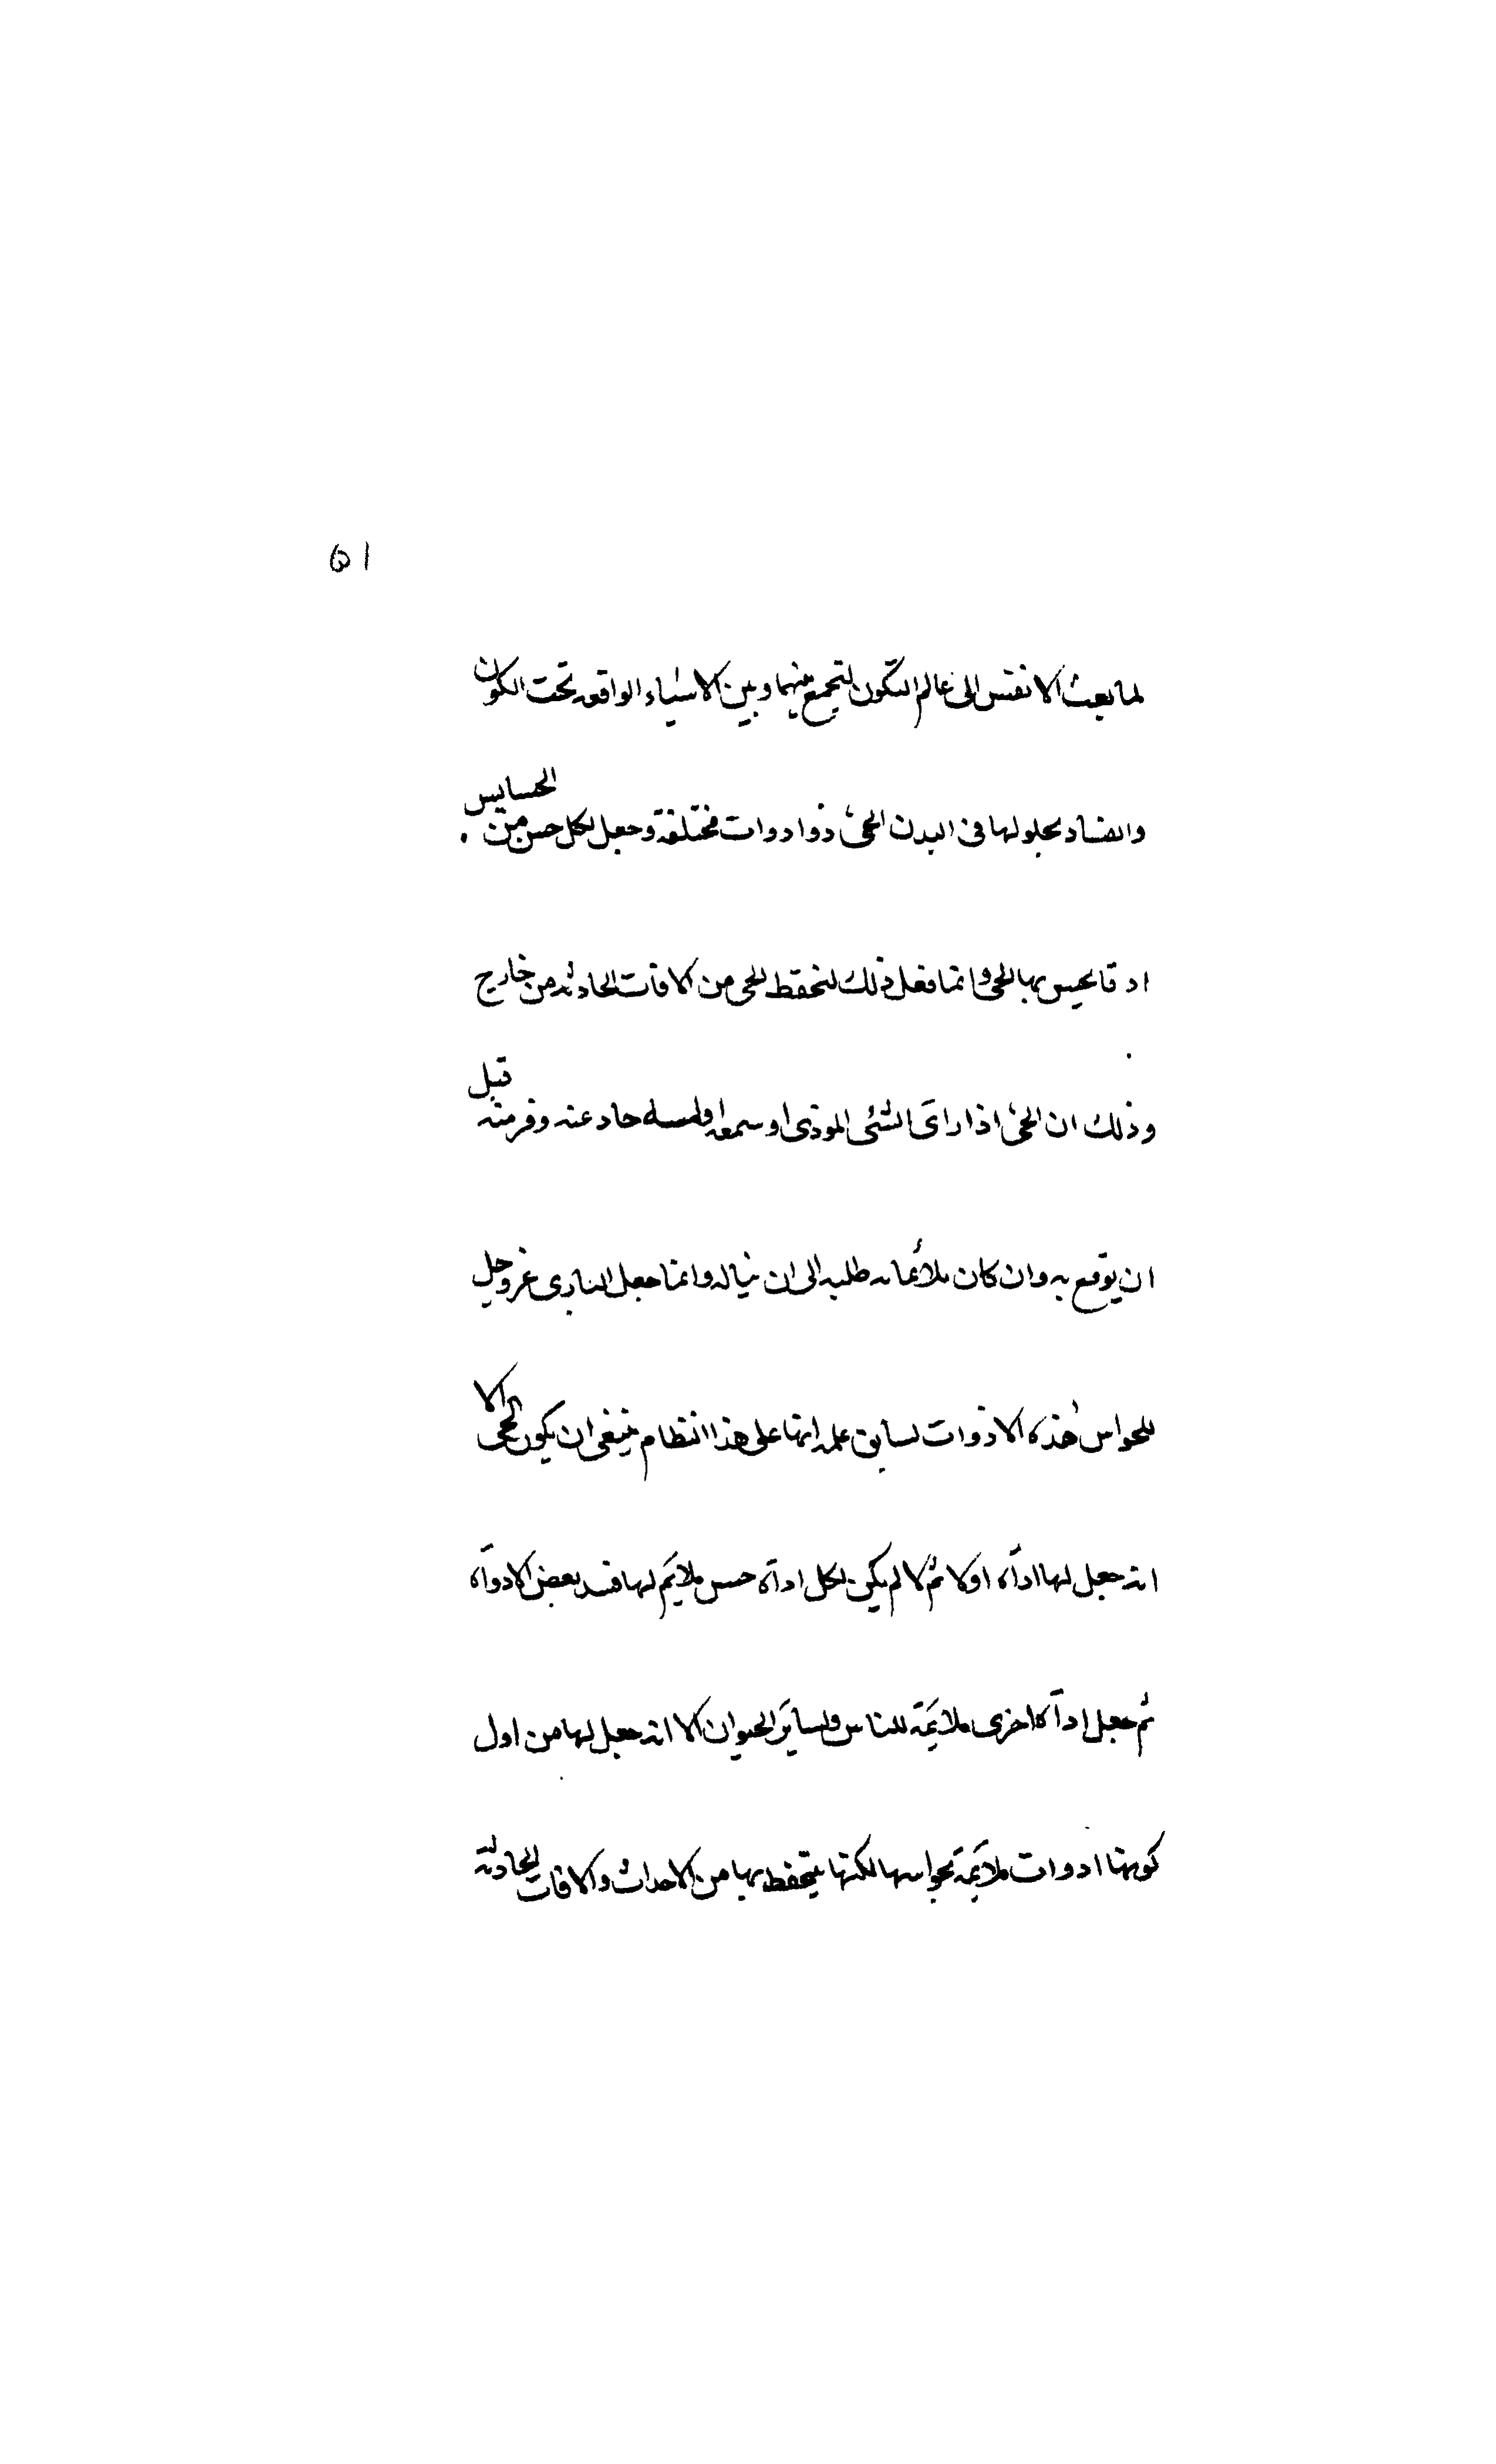 ٥١
لما بعث الانفس الى عالم التكون لتجمع بينهما وبين الاشياء الواقعه تحت الكون
والفساد بحلولها فى البدن الحى ذوا دوات مختلفة وجعل لكل حس من الحسايس
اد قا يحيس بها الحى وانما فعل ذلك لتحفظ الحى من الافات الحادثه من خارج
وذلك ان الحى اذا راى الشئى الموذى او سمعه او لمسه حاد عنه وفر منه قبل
ان يوقع به وان كان ملائما له طلبه الى ان يناله وانما جعل البارى عز وجل
للحواس هذه الادوات لسابق علمه انها على هذا النظام ينبغى ان يكون الحى الا
انه جعل لها اداة اولا ثم لا لم يكن لكل اداة حس ملايم لها فسد بعض الادواة
ثم جعل اداة اخرى ملايمة للناس ولساير الحيوان الا انه جعل لها من اول
كونها ادوات ملايمة لحواسها لكنها يتحفظ بها من الاحداث والافات الحادثة